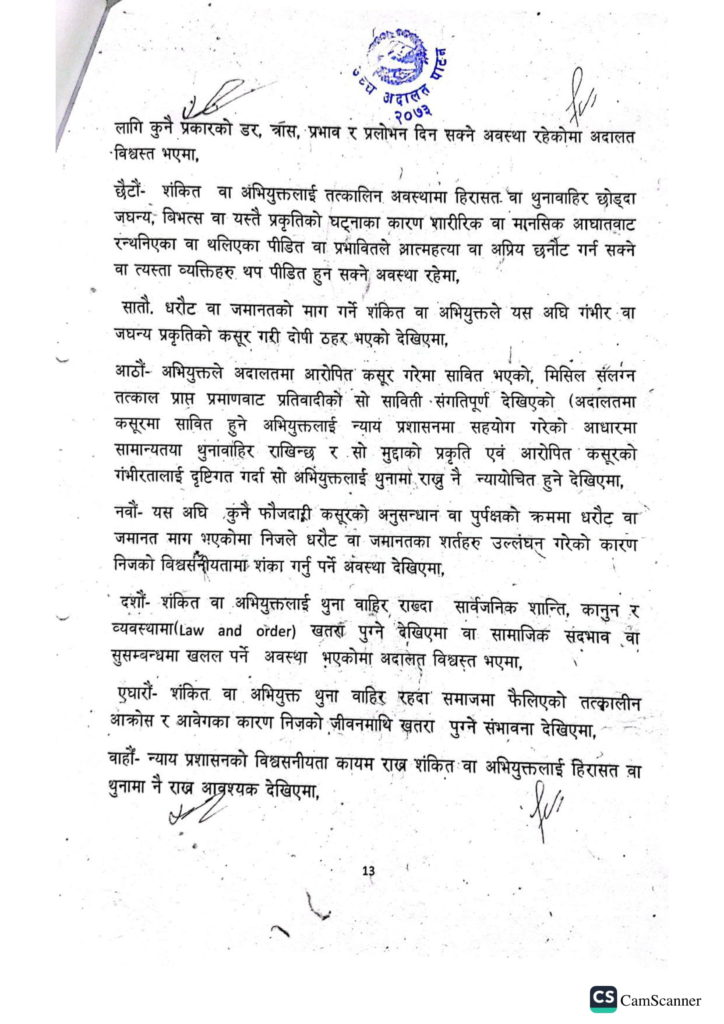 उच्च अदालत पाटन
२०७३
लागि कुनै प्रकारको डर, त्रास, प्रभाव र प्रलोभन दिन सक्ने अवस्था रहेकोमा अदालत
विश्वस्त भएमा,
छैटौं- शंकित वा अभियुक्तलाई तत्कालिन अवस्थामा हिरासत वा थुनावाहिर छोड्दा
जघन्य, बिभत्स वा यस्तै प्रकृतिको घटनाका कारण शारीरिक वा मानसिक आघातवाट
रन्थनिएका वा थलिएका पीडित वा प्रभावितले आत्महत्या वा अप्रिय छनौट गर्न सक्ने
वा त्यस्ता व्यक्तिहरु थप पीडित हुन सक्ने अवस्था रहेमा,
सातौ. धरौट वा जमानतको माग गर्ने शंकित वा अभियुक्तले यस अघि गंभीर वा
जघन्य प्रकृतिको कसूर गरी दोषी ठहर भएको देखिएमा,
आठौं- अभियुक्तले अदालतमा आरोपित कसूर गरेमा सावित भएको, मिसिल संलग्न
तत्काल प्राप्त प्रमाणवाट प्रतिवादीको सो साविती संगतिपूर्ण देखिएको (अदालतमा
कसूरमा सावित हुने अभियुक्तलाई न्याय प्रशासनमा सहयोग गरेको आधारमा
सामान्यतया थुनावाहिर राखिन्छ र सो मुद्दाको प्रकृति एवं आरोपित कसूरको
गंभीरतालाई दृष्टिगत गर्दा सो अभियुक्तलाई थुनामा राख्नु नै न्यायोचित हुने देखिएमा,
नवौं- यस अघि कुनै फौजदारी कसूरको अनुसन्धान वा पुर्पक्षको क्रममा धरौट वा
जमानत माग भएकोमा निजले धरौट वा जमानतका शर्तहरु उल्लंघन गरेको कारण
निजको विश्वसनीयतामा शंका गर्नु पर्ने अवस्था देखिएमा,
दशौं- शंकित वा अभियुक्तलाई थुना वाहिर राख्दा सार्वजनिक शान्ति, कानुन र
व्यवस्थामा(Law and order) खतरा पुग्ने देखिएमा वा सामाजिक सदभाव वा
सुसम्बन्धमा खलल पर्ने अवस्था भएकोमा अदालत विश्वस्त भएमा,
एघारौं- शंकित वा अभियुक्त थुना वाहिर रहदा समाजमा फैलिएको तत्कालीन
आक्रोस र आवेगका कारण निजको जीवनमाथि खतरा पुग्ने संभावना देखिएमा,
वाहौं- न्याय प्रशासनको विश्वसनीयता कायम राख्न शंकित वा अभियुक्तलाई हिरासत वा
थुनामा नै राख्न आवश्यक देखिएमा,
13
CS CamScanner